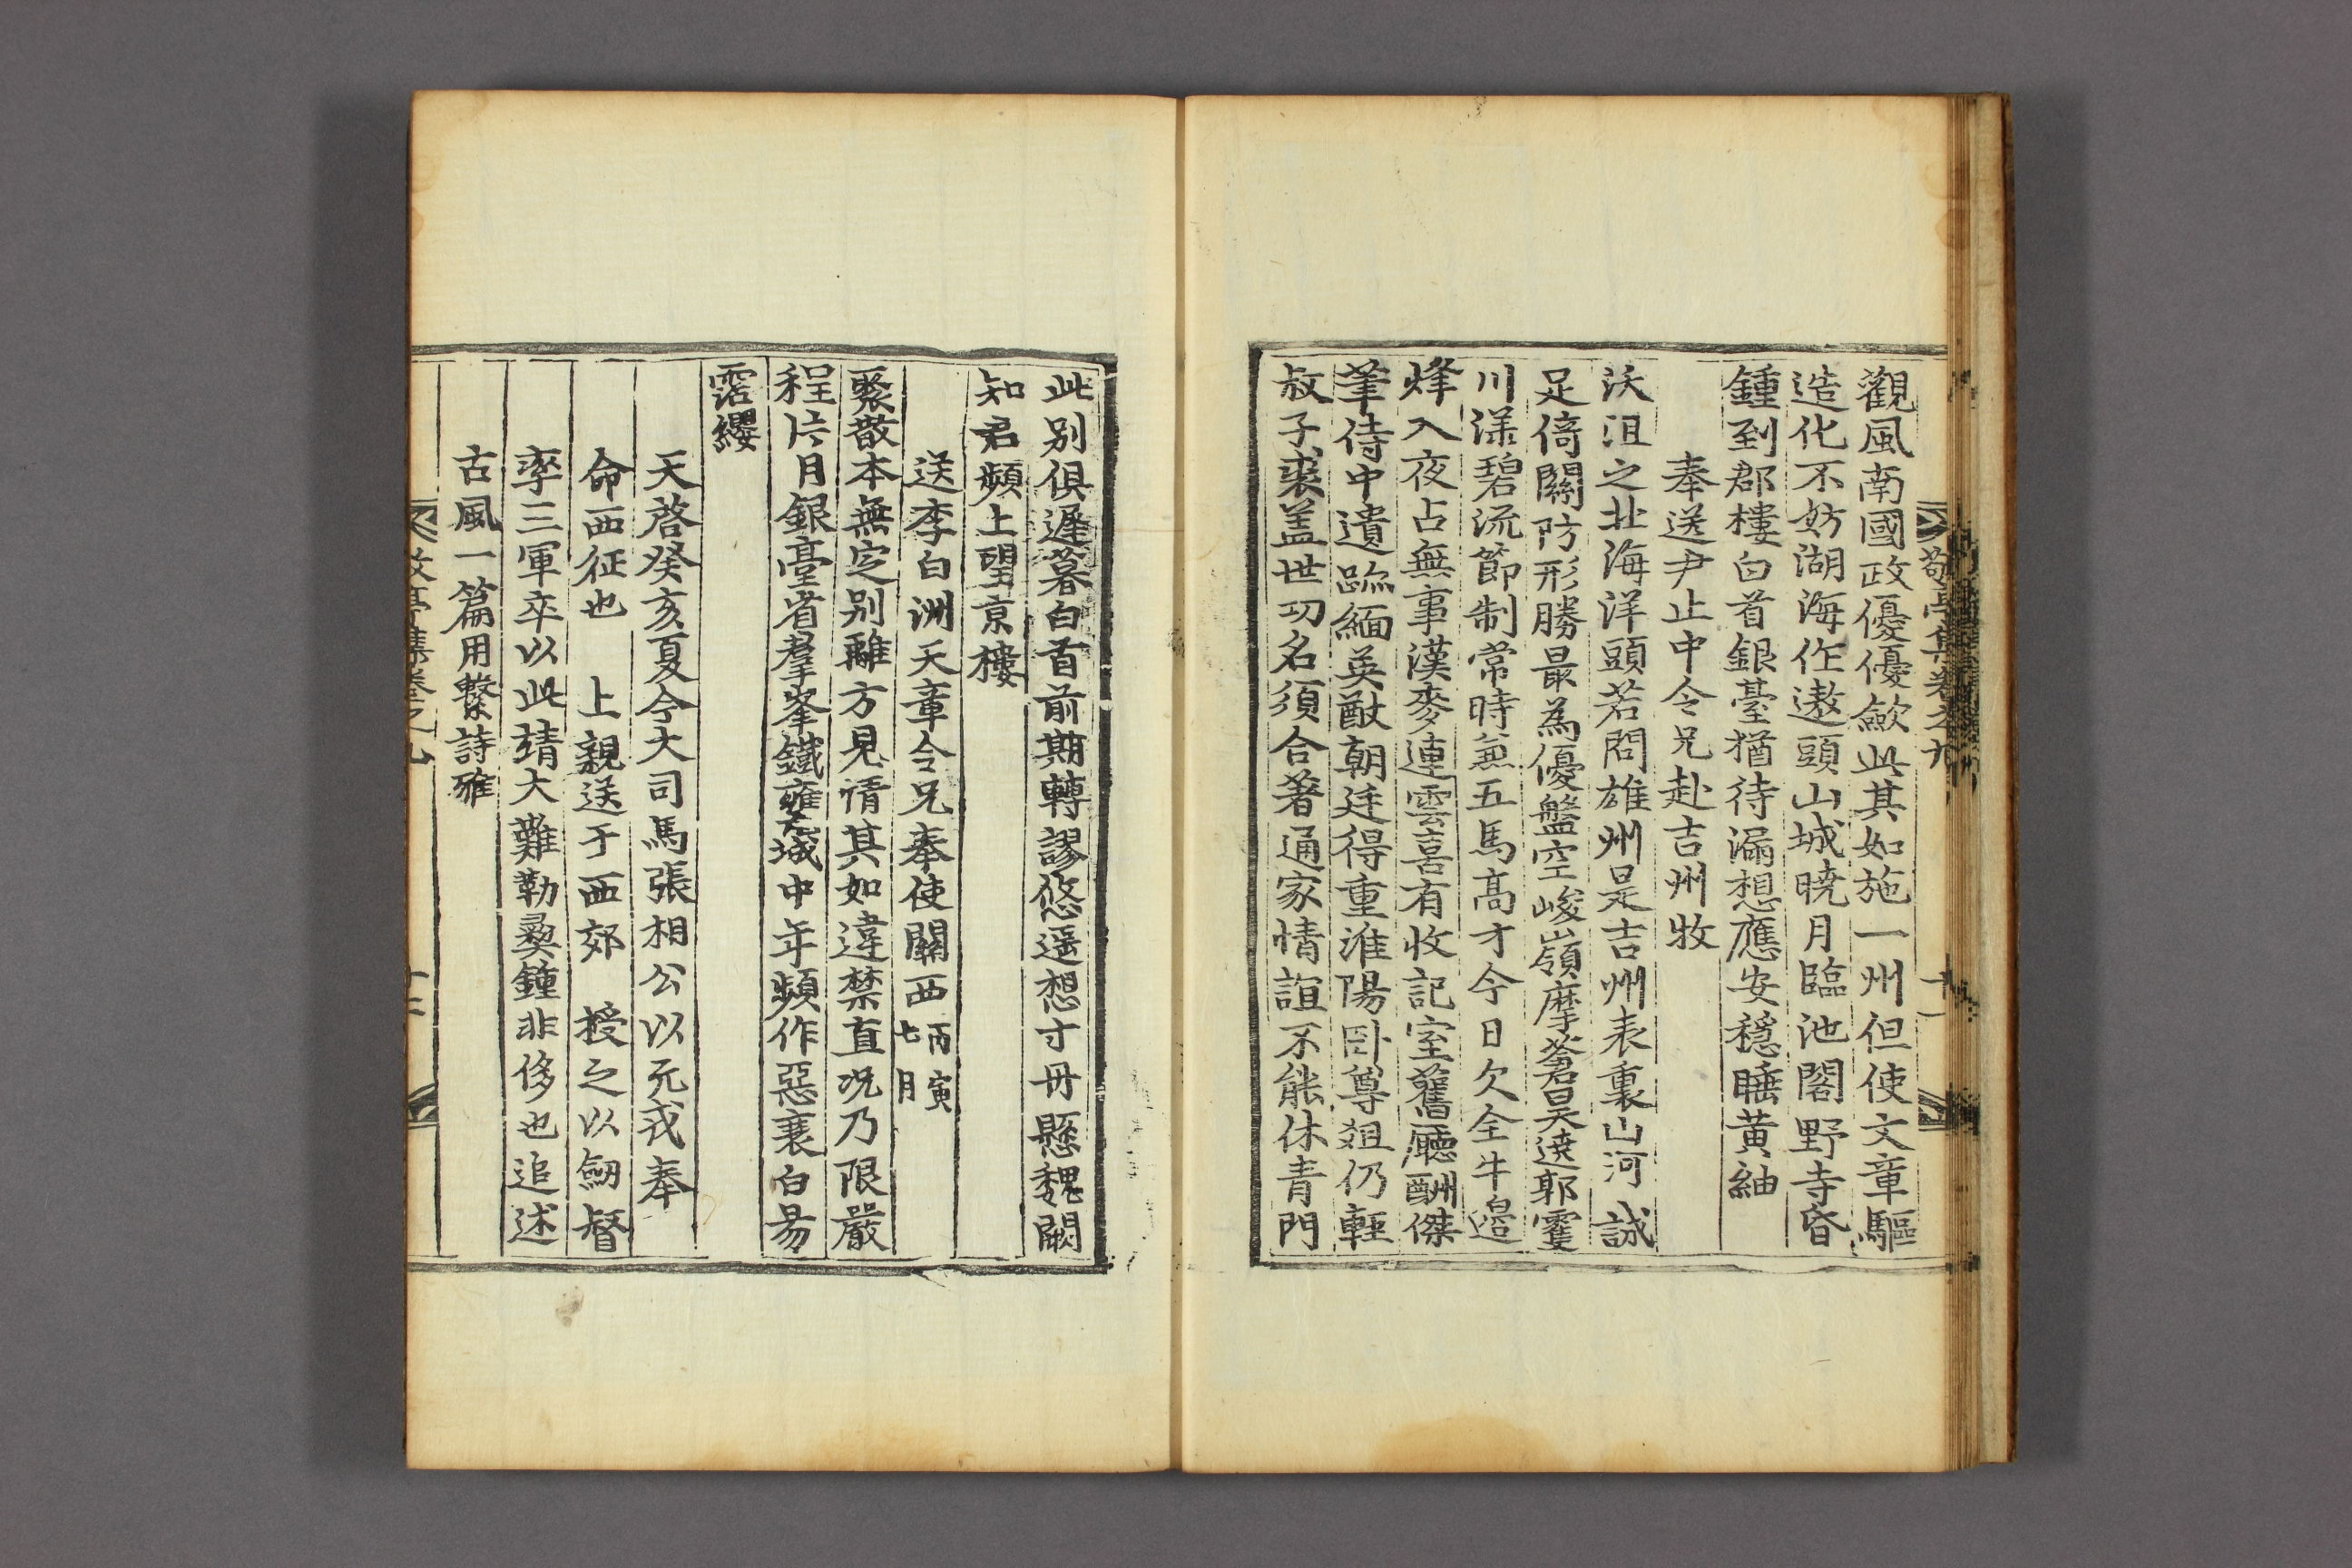 觀風南國政優優歛此其如施一州但使文章驅
造化不妨湖海作遨頭山城曉月臨池閣野寺昏
鍾到郡樓白首銀臺猶待漏想應安穩睡黃紬
奉送尹止中令兄赴吉州牧
沃沮之北海洋頭若問雄州是吉州表裏山河誠
足倚關防形勝最為優盤空峻嶺摩蒼昊遶郭雙
川漾碧流節制常時兼五馬高才今日欠全牛邉
烽入夜占無事漢麥連雲喜有收記室舊廳酬傑
筆侍中遺跡緬英猷朝廷得重淮陽卧尊俎仍輕
叔子裘盖世功名須合著通家情誼不能休青門
此别俱遲暮白首前期轉謬悠遥想寸丹懸魏闕
知君頻上望京樓
送李白洲天章令兄奉使關西丙寅七月
聚散本無定别離方見情其如違禁直况乃限嚴
程片月銀臺省羣峯鐵甕城中年頻作惡衰白易
霑纓
天啓癸亥夏今大司馬張相公以元戎奉
命西征也 上親送于西郊 授之以劒督
率三軍卒以此靖大難勒彛鍾非侈也追述
古風一篇用繫詩雅
敬亭集卷之九 十二